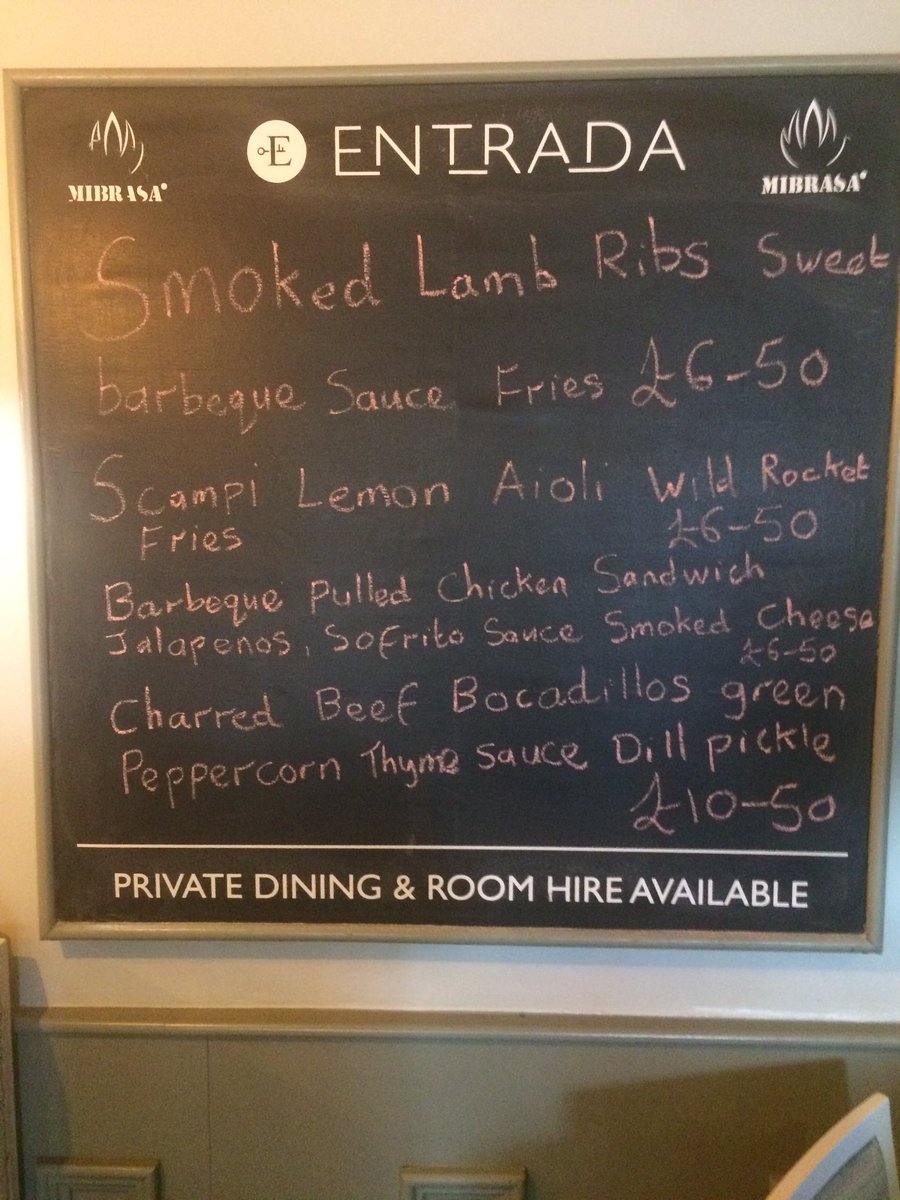 MIBRASA
E ENTRADA
MIBRASA
Smoked Lamb Ribs Sweet
barbeque Sauce Fries £6-50
Scampi Lemon Aioli Wild Rocket
Fries £6-50
Barbeque Pulled Chicken Sandwich
Jalapenos, Sofrito Sauce Smoked Cheese
£6-50
Charred Beef Bocadillos green
Peppercorn Thyme sauce Dill pickle
£10-50
PRIVATE DINING & ROOM HIRE AVAILABLE